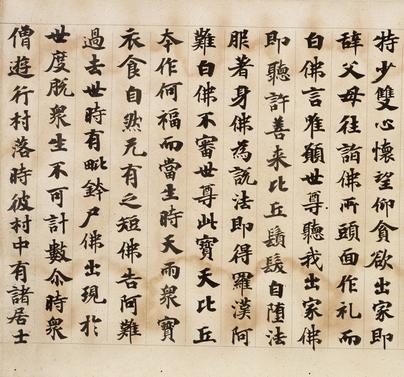 特少雙心懷望仰貪欲出家即
辞父母往詣佛所頭面作礼而
白佛言唯願世尊聽我出家佛
即聽許善来比丘鬚髮自墮法
服著身佛為說法即得羅漢阿
難白佛不審世尊此寶天比丘
本作何福而當生時天雨衆寶
衣食自然无有之短佛告阿難
過去世時有毗鉢尸佛出現於
世度脫衆生不可計數尒時衆
僧遊行村落時彼村中有諸居士